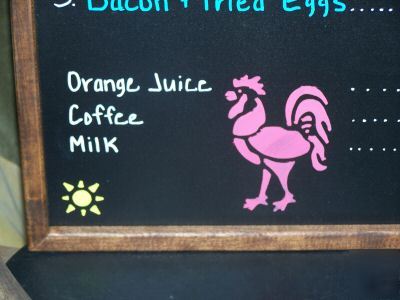 3. Bacon + Fried Eggs.....
Orange Juice ...
Coffee ....
Milk ....